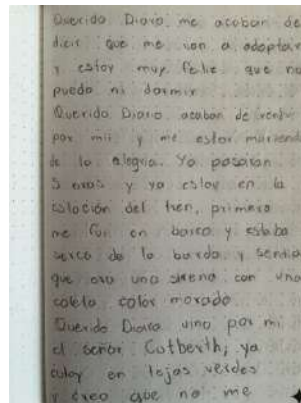 Querido Diario, me acaban de
dicir que me van a adoptar
y estoy muy feliz que no
puedo ni dormir
Querido Diario acaban de venir
por mii y me estoy muriendo
de la alegria. Ya pasaron
5 oras y ya estoy en la
estación del tren, primero
me fui en barco y estaba
serca de la borda y sentia
que era una sirena con una
coleta color morado
Querido Diario vino por mi
el señor Cutberth, ya
estoy en tejas verdes
y creo que no me